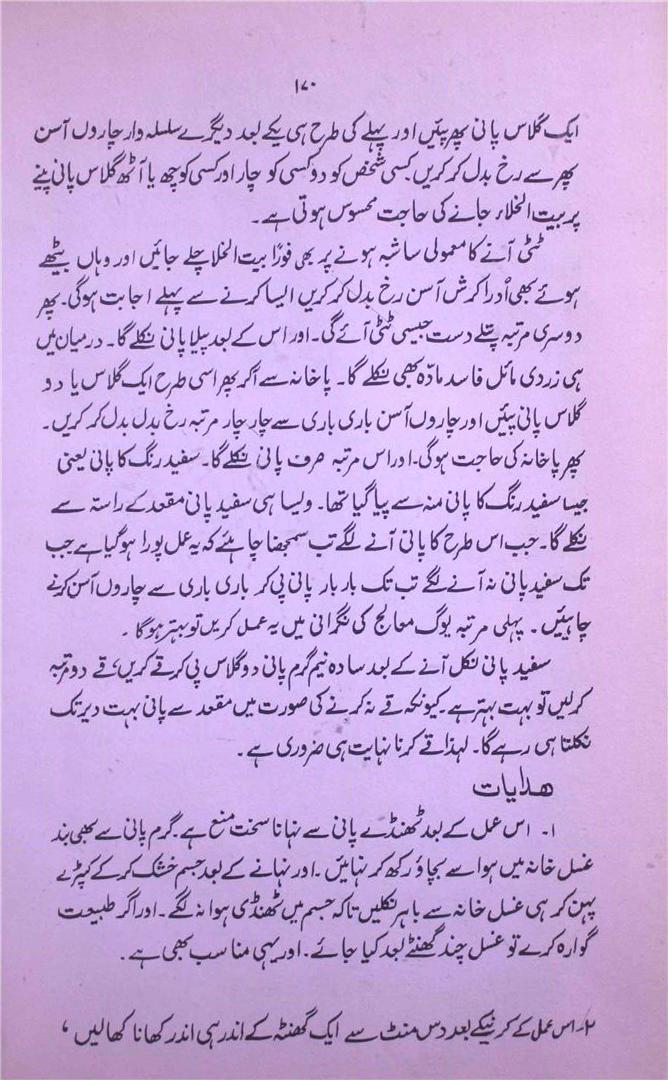 ۱۷۰
ایک گلاس پانی پھر پئیں اور پہلے کی طرح ہی یکے بعد دیگرے سلسلہ وار چاروں آسن
پھر سے رخ بدل کر کریں۔ کسی شخص کو دو کسی کو چار اور کسی کو چھ یا آٹھ گلاس پانی پینے
پر بیت الخلاء جانے کی حاجت محسوس ہوتی ہے۔
ٹٹی آنے کا معمولی سا شبہ ہونے پر بھی فوراً بیت الخلا چلے جائیں اور وہاں بیٹھے
ہوئے بھی اُدرا کرش آسن رخ بدل کر کریں ایسا کرنے سے پہلے اجابت ہوگی۔ پھر
دوسری مرتبہ پتلے دست جیسی ٹٹی آئے گی۔ اور اس کے بعد پیلا پانی نکلے گا۔ درمیان میں
ہی زردی مائل فاسد مادّہ بھی نکلے گا۔ پاخانہ سے آکر پھر اسی طرح ایک گلاس یا دو
گلاس پانی پئیں اور چاروں آسن باری باری سے چار چار مرتبہ رخ بدل بدل کر کریں۔
پھر پاخانہ کی حاجت ہوگی۔ اور اس مرتبہ صرف پانی نکلے گا۔ سفید رنگ کا پانی یعنی
جیسا سفید رنگ کا پانی منہ سے پیا گیا تھا۔ ویسا ہی سفید پانی مقعد کے راستہ سے
نکلے گا۔ جب اس طرح کا پانی آنے لگے تب سمجھنا چاہئے کہ یہ عمل پورا ہو گیا ہے جب
تک سفید پانی نہ آنے لگے تب تک بار بار پانی پی کر باری باری سے چاروں آسن کرنے
چاہیئیں۔ پہلی مرتبہ یوگ معالج کی نگرانی میں یہ عمل کریں تو بہتر ہوگا۔
سفید پانی نکل آنے کے بعد سادہ نیم گرم پانی دو گلاس پی کر قے کریں، قے دو مرتبہ
کرلیں تو بہت بہتر ہے۔ کیونکہ قے نہ کرنے کی صورت میں مقعد سے پانی بہت دیر تک
نکلتا ہی رہے گا۔ لہذا قے کرنا نہایت ہی ضروری ہے۔
ھدایات
۱۔ اس عمل کے بعد ٹھنڈے پانی سے نہانا سخت منع ہے۔ گرم پانی سے بھی بند
غسل خانہ میں ہوا سے بچاؤ رکھ کر نہائیں۔ اور نہانے کے بعد جسم خشک کر کے کپڑے
پہن کر ہی غسل خانہ سے باہر نکلیں تاکہ جسم میں ٹھنڈی ہوا نہ لگے۔ اور اگر طبیعت
گوارہ کرے تو غسل چند گھنٹے بعد کیا جائے۔ اور یہی مناسب بھی ہے۔
۲۔ اس عمل کے کرنیکے بعد دس منٹ سے ایک گھنٹہ کے اندر ہی اندر کھانا کھالیں،